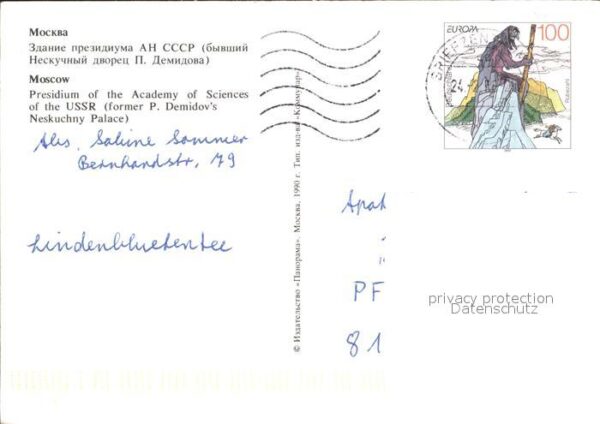 Москва
Здание президиума АН СССР (бывший
Нескучный дворец П. Демидова)
Moscow
Presidium of the Academy of Sciences
of the USSR (former P. Demidov's
Neskuchny Palace)
Abs. Sabine Sommer
Bernhardstr. 79
Lindenbluetentee
© Издательство «Панорама». Москва, 1990 г. Тип. изд-ва «Коммунар»
EUROPA
100
Rübezahl
BRIEFZEN
24
Apot
PF
81
privacy protection
Datenschutz